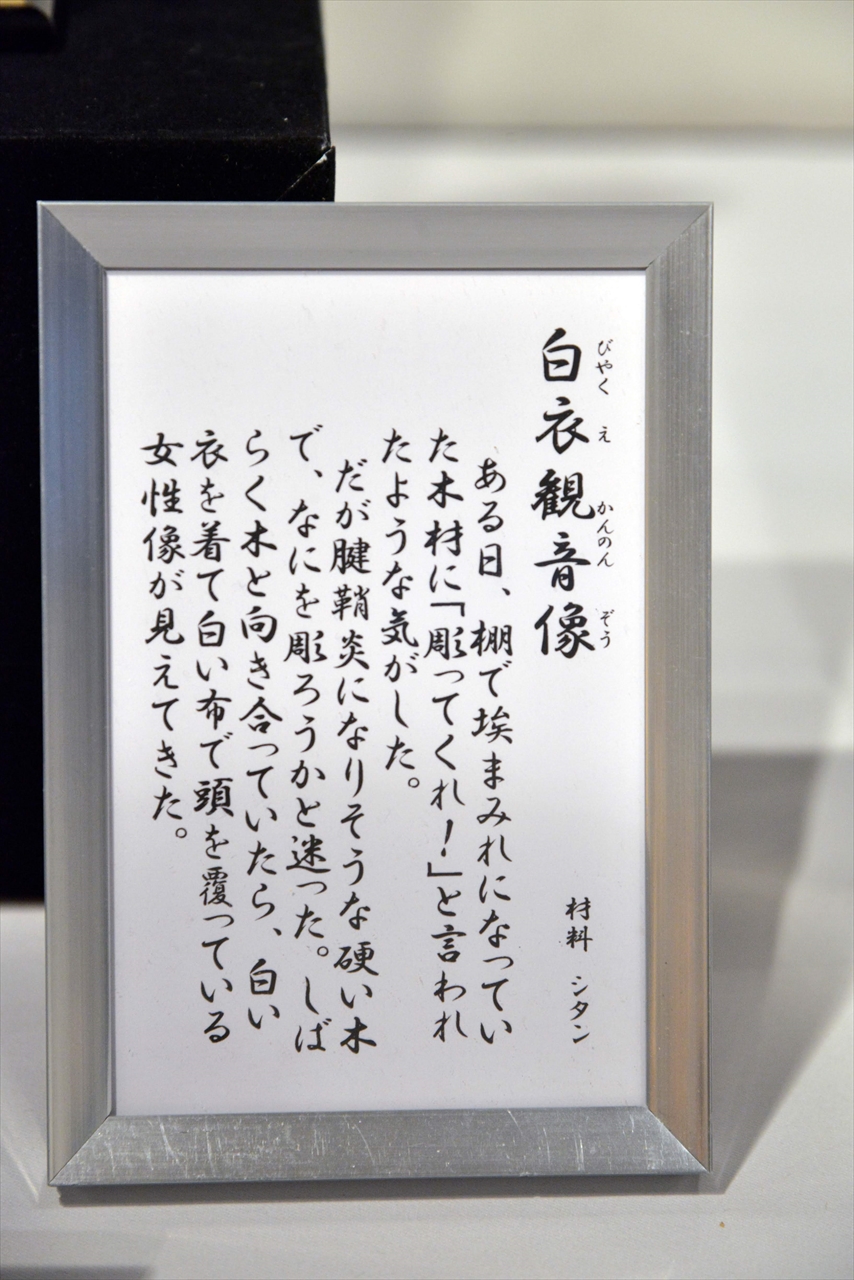 白衣観音像
びやく え かんのん ぞう
材料 シタン
ある日、棚で埃まみれになってい
た木材に「彫ってくれ!」と言われ
たような気がした。
だが腱鞘炎になりそうな硬い木
で、なにを彫ろうかと迷った。しば
らく木と向き合っていたら、白い
衣を着て白い布で頭を覆っている
女性像が見えてきた。